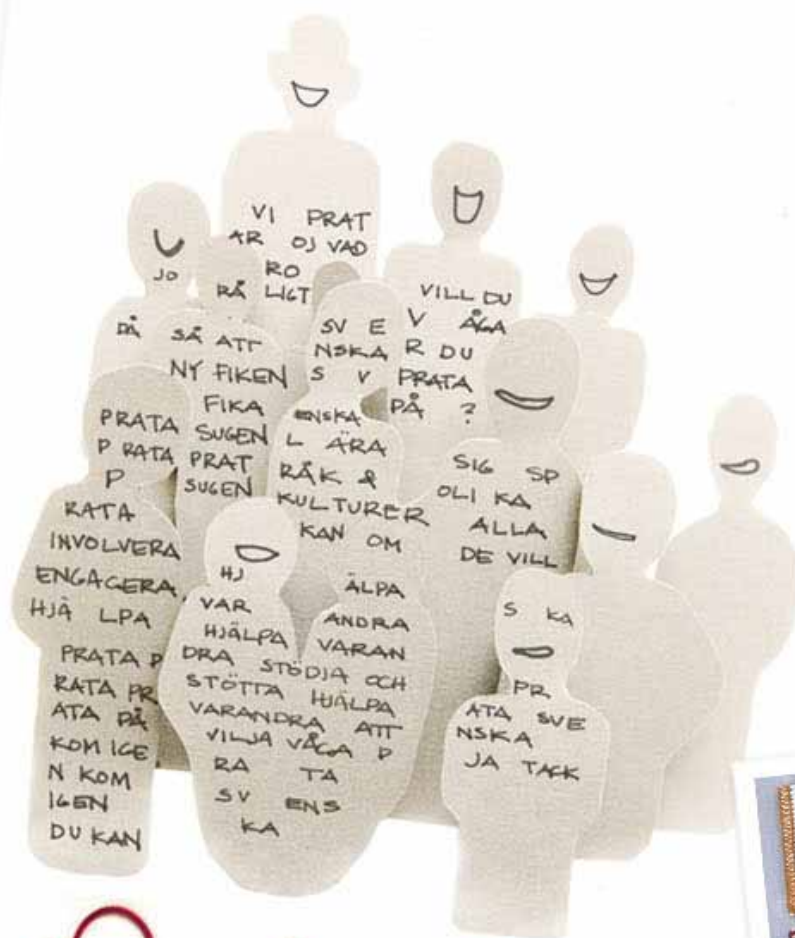 VI PRAT
AR OJ VAD
RO
LIGT
JO
DÅ
RÅ
SÅ ATT
NY FIKEN
FIKA
SUGEN
PRAT
SUGEN
SV E
NSKA
S V
ENSKA
L ÄRA
RÅK &
KULTURER
KAN OM
VILL DU
V ÅGA
R DU
PRATA
PÅ ?
SIG SP
OLI KA
ALLA
DE VILL
PRATA
P RATA
P
RATA
INVOLVERA
ENGAGERA
HJÄ LPA
PRATA P
RATA PR
ATA PÅ
KOM IGE
N KOM
IGEN
DU KAN
HJ ÄLPA
VAR ANDRA
HJÄLPA VARAN
DRA STÖDJA OCH
STÖTTA HJÄLPA
VARANDRA ATT
VILJA VÅGA P
RA TA
SV ENS
KA
S KA
PR
ATA SVE
NSKA
JA TACK